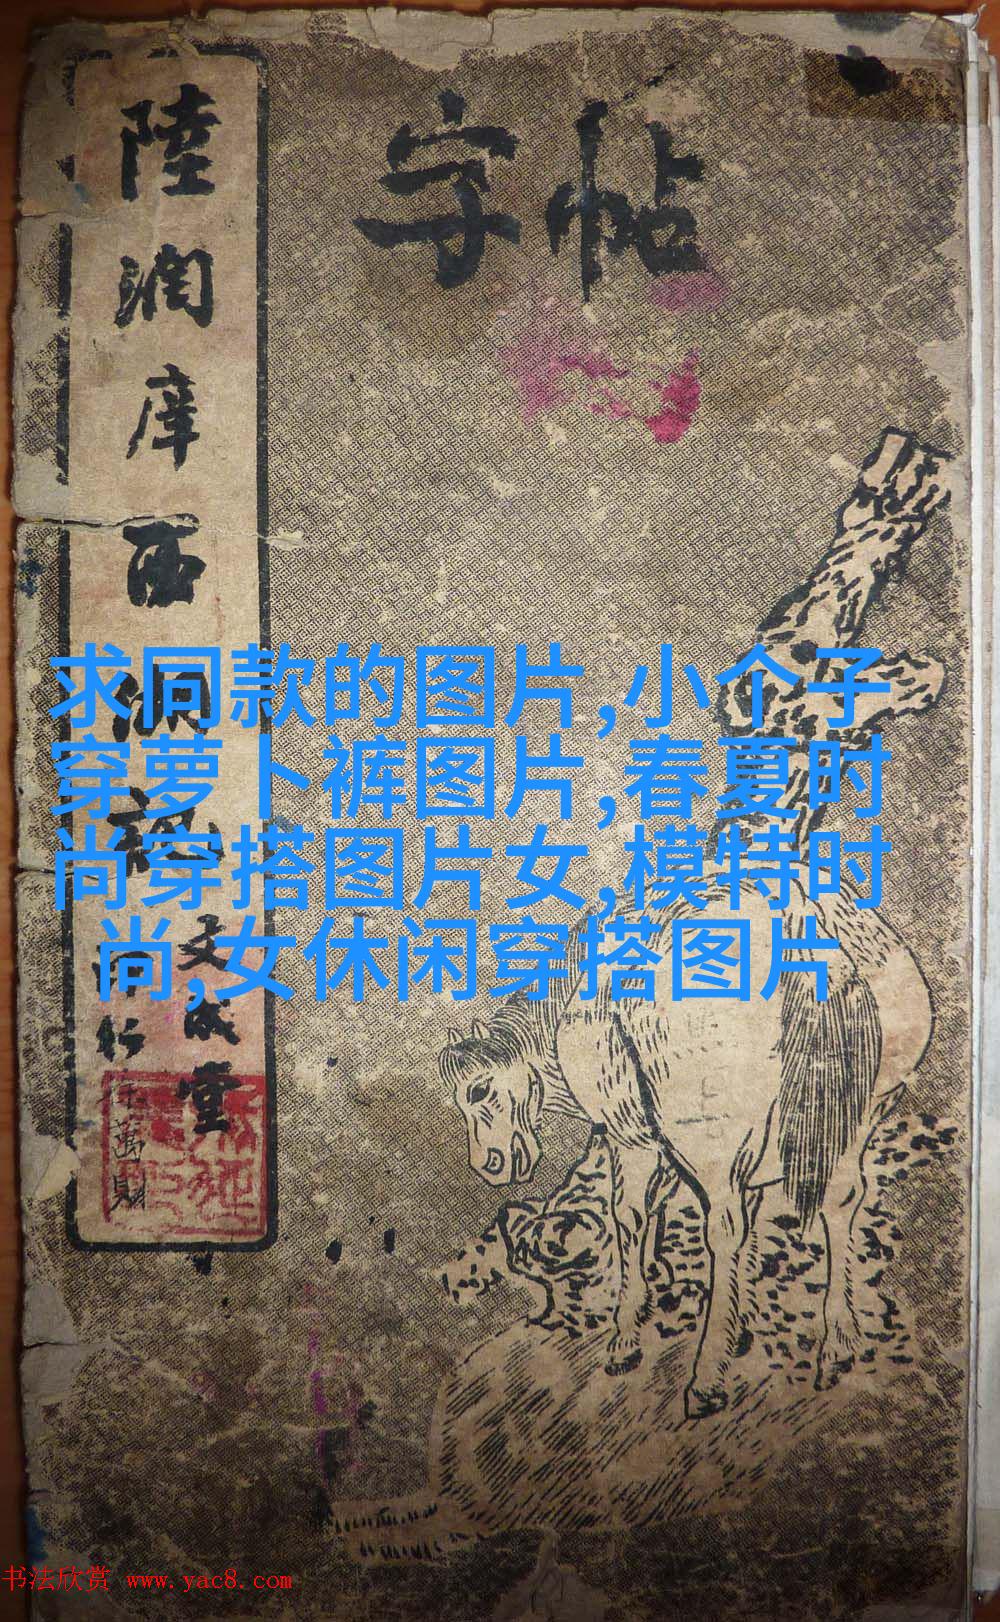 字帖
陸潤庠西湖
文成堂
徐萬財
求同款的图片,小个子
穿萝卜裤图片,春夏时
尚穿搭图片女,模特时
尚,女休闲穿搭图片
书法欣赏 www.yac8.com